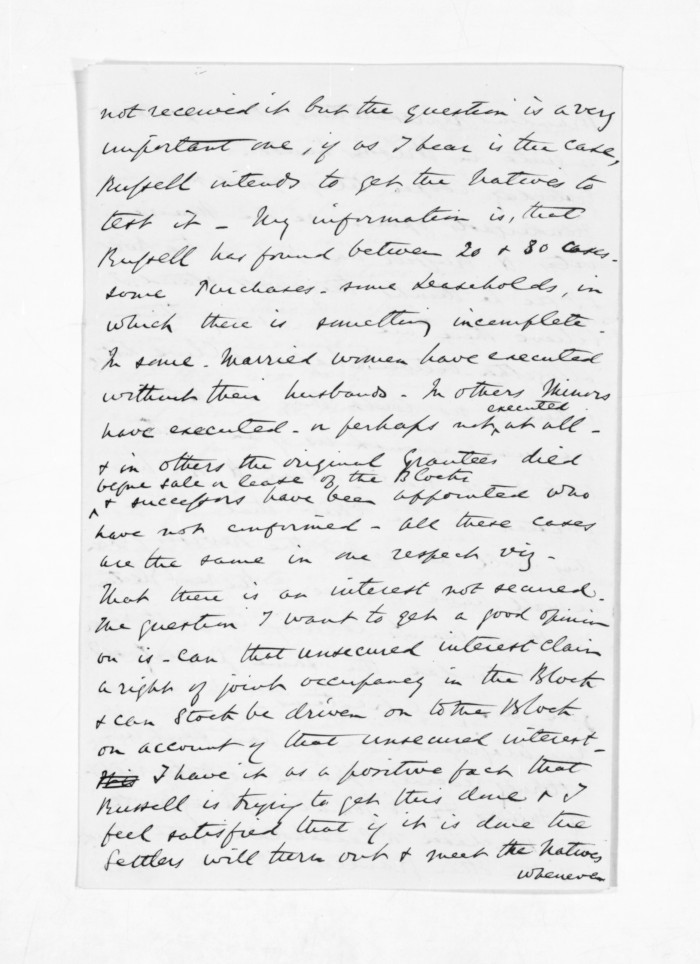 not received it but the question is a very
important one, if as I hear is the case,
Russell intends to get the Natives to
test it - My information is, that
Russell has found between 20 & 30 cases -
some Purchases - some Leaseholds, in
which there is something incomplete -
In some - Married women have executed
without their husbands - In others Minors
executed
have executed - or perhaps not at all -
& in others the original Grantees died
before sale or lease of the Blocks
& successors have been appointed who
have not confirmed - all these cases
are the same in one respect viz -
That there is an interest not secured -
The question I want to get a good opinion
on is - can that unsecured interest claim
a right of joint occupancy in the Block
& can Stock be driven on to the Block
on account of that unsecured interest -
This I have it as a positive fact that
Russell is trying to get this done & I
feel satisfied that if it is done the
Settlers will turn out & meet the Natives
whenever